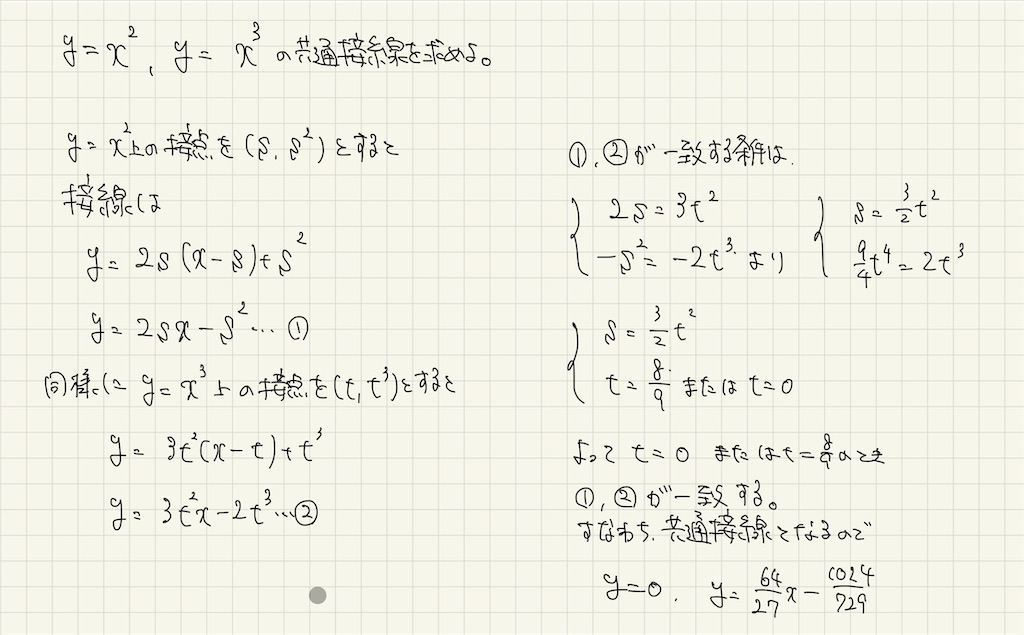 y = x², y = x³ の共通接線を求めよ。
y = x²上の接点を (s, s²) とすると
接線は
y = 2s(x-s)+s²
y = 2sx - s² … ①
同様に y = x³ 上の接点を (t, t³) とすると
y = 3t²(x-t)+t³
y = 3t²x - 2t³ … ②
①, ② が一致する条件は、
{ 2s = 3t² { s = 3/2 t²
{ -s² = -2t³ より { 9/4 t⁴ = 2t³
{ s = 3/2 t²
{ t = 8/9 または t = 0
よって t = 0 または t = 8/9 のとき
①, ② が一致する。
すなわち、共通接線となるので
y = 0, y = 64/27 x - 1024/729